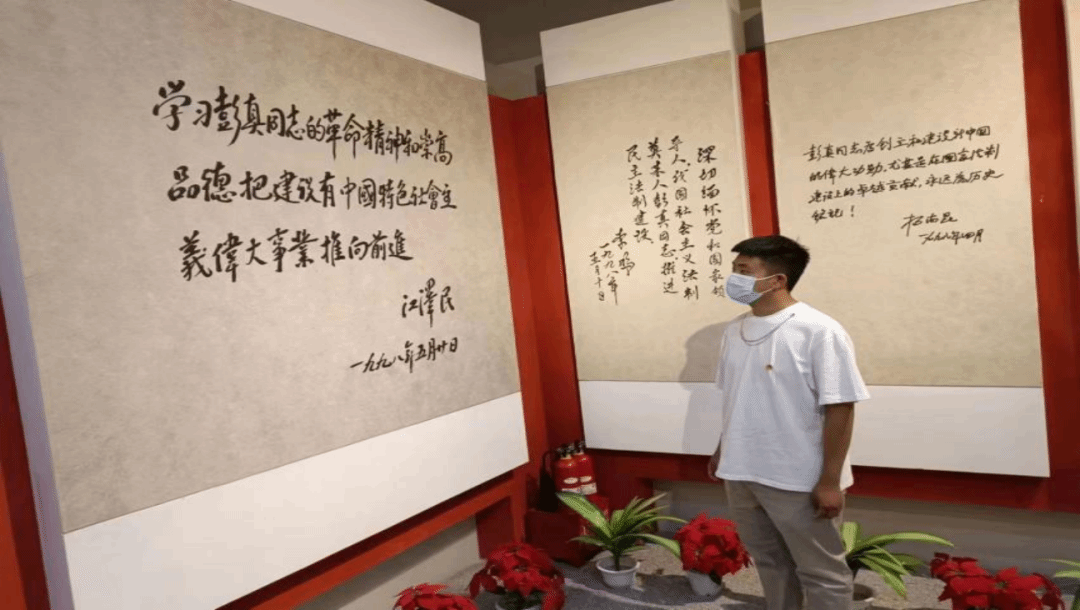 学习彭真同志的革命精神和崇高
品德把建设有中國特色社會主
義偉大事業推向前進
江澤民
一九九八年五月廿日
深切缅怀党和国家领
导人、我国社会主义法制
奠基人彭真同志,推进
民主法制建设。
李鹏
一九九八年
五月十日
彭真同志在创立和建设新中国
的伟大功勋,尤其是在国家法制
建设上的卓越贡献,永远为历史
铭记!
杨尚昆
一九九八年四月